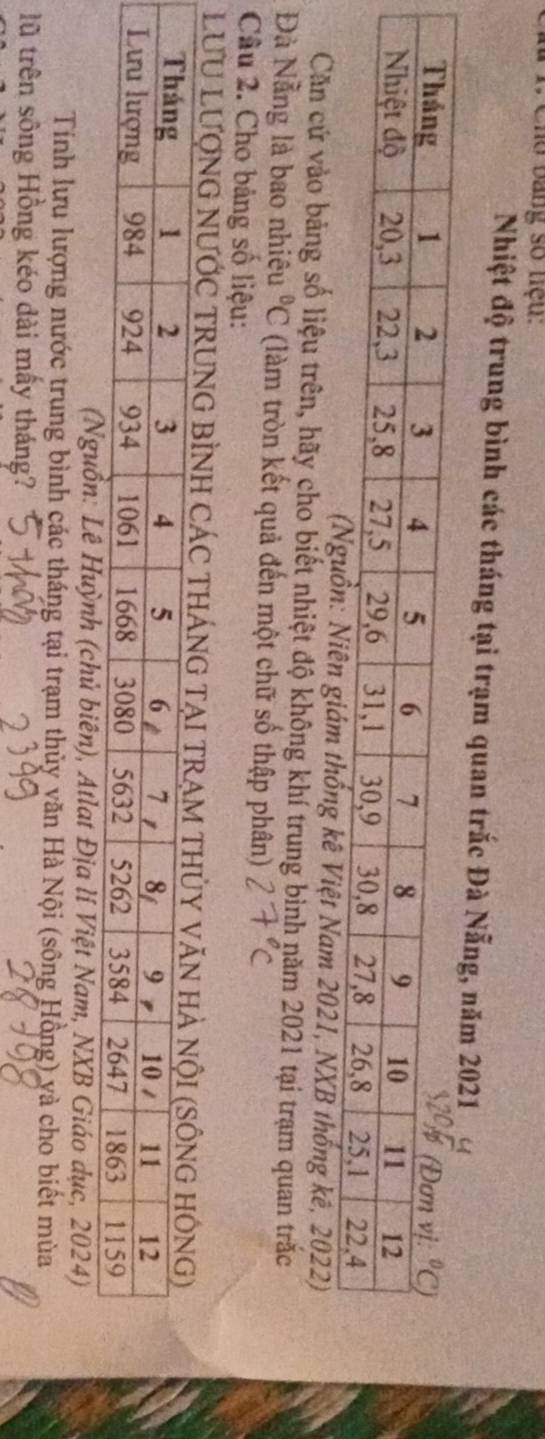 Cho bảng số liệu:
Nhiệt độ trung bình các tháng tại trạm quan trắc Đà Nẵng, năm 2021
(Đơn vị: ⁰C)
Tháng 1 2 3 4 5 6 7 8 9 10 11 12
Nhiệt độ 20,3 22,3 25,8 27,5 29,6 31,1 30,9 30,8 27,8 26,8 25,1 22,4
(Nguồn: Niên giám thống kê Việt Nam 2021, NXB thống kê, 2022)
Căn cứ vào bảng số liệu trên, hãy cho biết nhiệt độ không khí trung bình năm 2021 tại trạm quan trắc
Đà Nẵng là bao nhiêu ⁰C (làm tròn kết quả đến một chữ số thập phân) 27°C
Câu 2. Cho bảng số liệu:
LƯU LƯỢNG NƯỚC TRUNG BÌNH CÁC THÁNG TẠI TRẠM THỦY VĂN HÀ NỘI (SÔNG HỒNG)
Tháng 1 2 3 4 5 6 7 8 9 10 11 12
Lưu lượng 984 924 934 1061 1668 3080 5632 5262 3584 2647 1863 1159
(Nguồn: Lê Huỳnh (chủ biên), Atlat Địa lí Việt Nam, NXB Giáo dục, 2024)
Tính lưu lượng nước trung bình các tháng tại trạm thủy văn Hà Nội (sông Hồng) và cho biết mùa
lũ trên sông Hồng kéo dài mấy tháng? 5 tháng 2399 28798